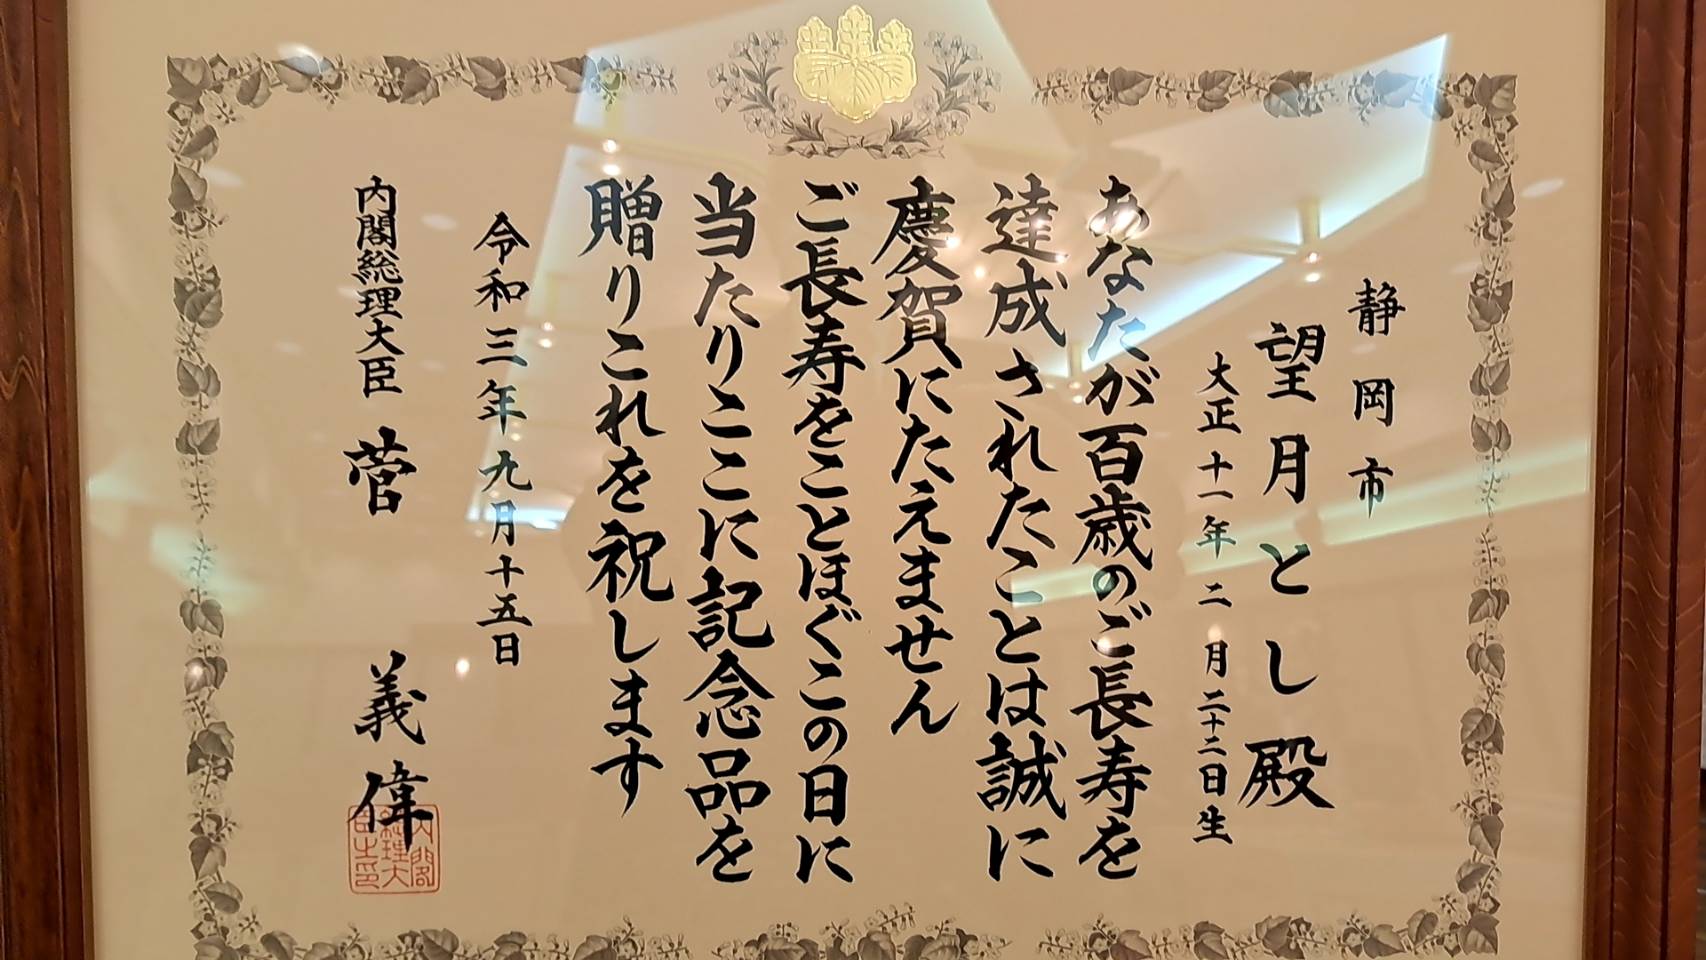 静岡市
望月とし殿
大正十一年二月二十二日生
あなたが百歳のご長寿を
達成されたことは誠に
慶賀にたえません
ご長寿をことほぐこの日に
当たりここに記念品を
贈りこれを祝します
令和三年九月十五日
内閣総理大臣 菅 義偉
内閣総理大臣之印